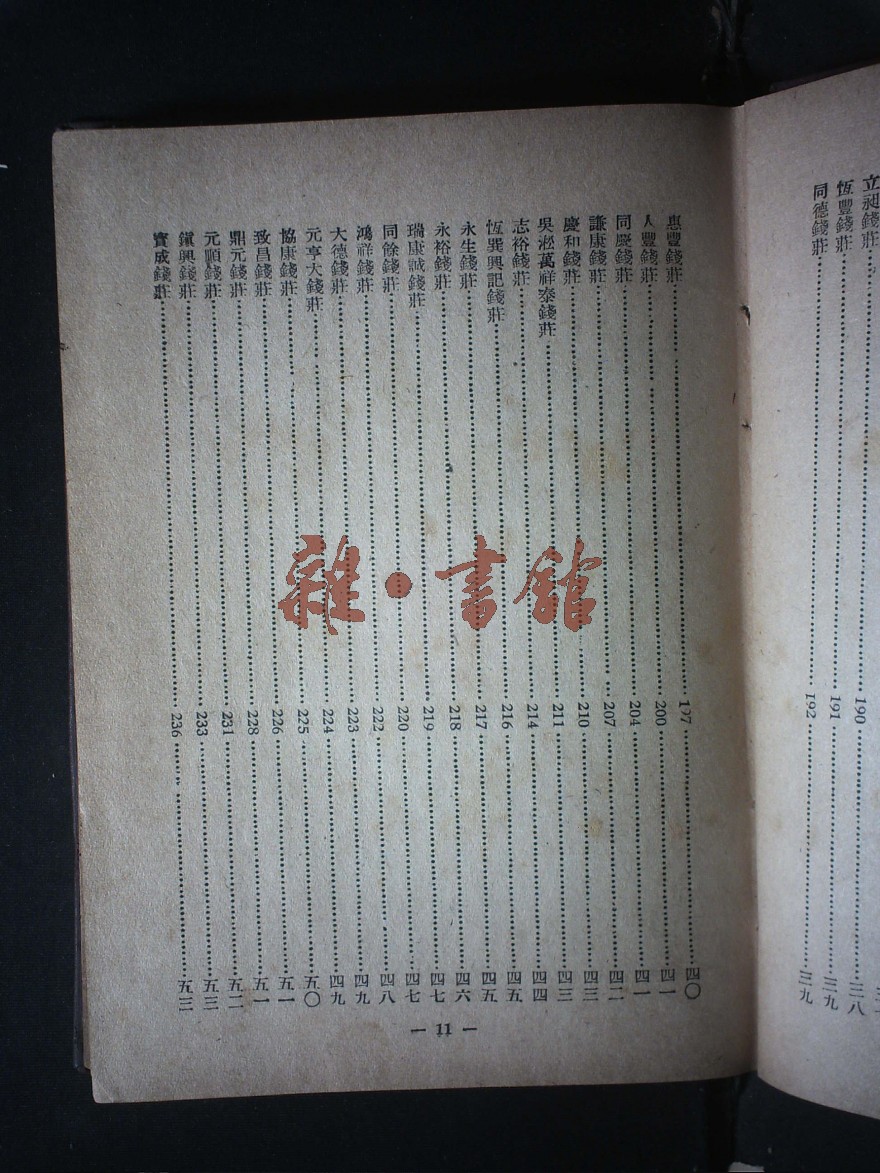 立昶錢莊……190……三八
恆豐錢莊……191……三九
同德錢莊……192……三九
惠豐錢莊……197……四〇
人豐錢莊……200……四一
同慶錢莊……204……四一
謙康錢莊……207……四二
慶和錢莊……210……四三
吳淞萬祥泰錢莊……211……四三
志裕錢莊……214……四四
恆巽興記錢莊……216……四五
永生錢莊……217……四五
永裕錢莊……218……四六
瑞康誠錢莊……219……四七
同餘錢莊……220……四七
鴻祥錢莊……222……四八
大德錢莊……223……四九
元亨大錢莊……224……四九
協康錢莊……225……五〇
致昌錢莊……226……五一
鼎元錢莊……228……五一
元順錢莊……231……五二
鎭興錢莊……233……五三
寶成錢莊……236……五三
— 11 —
雜·書館